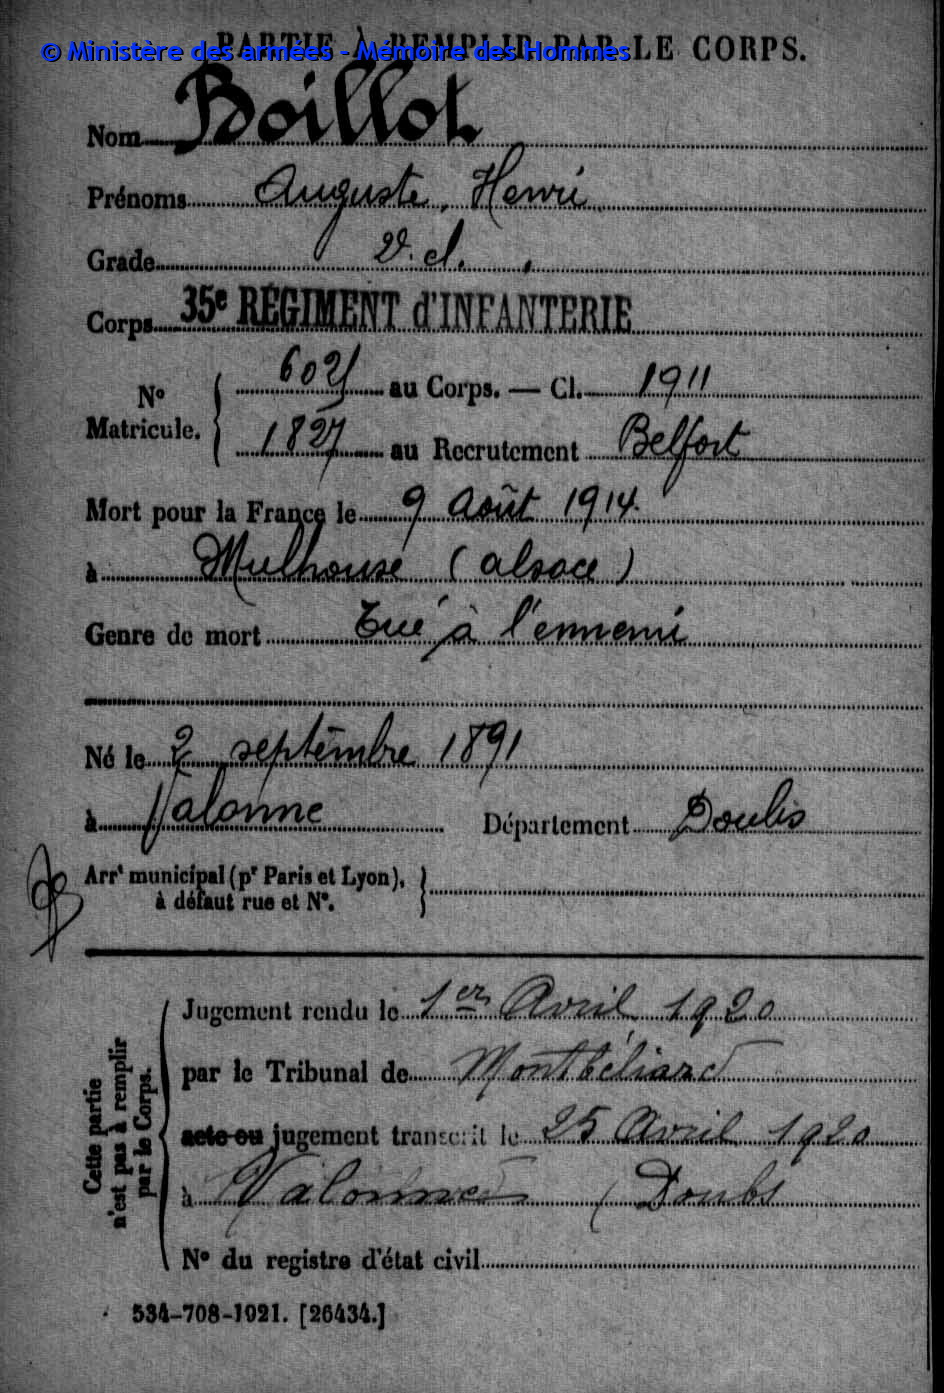 PARTIE À REMPLIR PAR LE CORPS.
© Ministère des armées - Mémoire des Hommes
Nom Boillot
Prénoms Auguste, Henri
Grade 2e. cl.
Corps 35e RÉGIMENT d'INFANTERIE
No Matricule. { 6025 au Corps. — Cl. 1911
1827 au Recrutement Belfort
Mort pour la France le 9 Août 1914.
à Mulhouse (alsace)
Genre de mort Tué à l'ennemi
Né le 2 septembre 1891
à Valonne Département Doubs
Arrt municipal (pr Paris et Lyon),
à défaut rue et No.
Cette partie n'est pas à remplir par le Corps.
Jugement rendu le 1er Avril 1920
par le Tribunal de Montbéliard
acte ou jugement transcrit le 25 Avril 1920
à Valonne (Doubs
No du registre d'état civil
534-708-1921. [26434.]